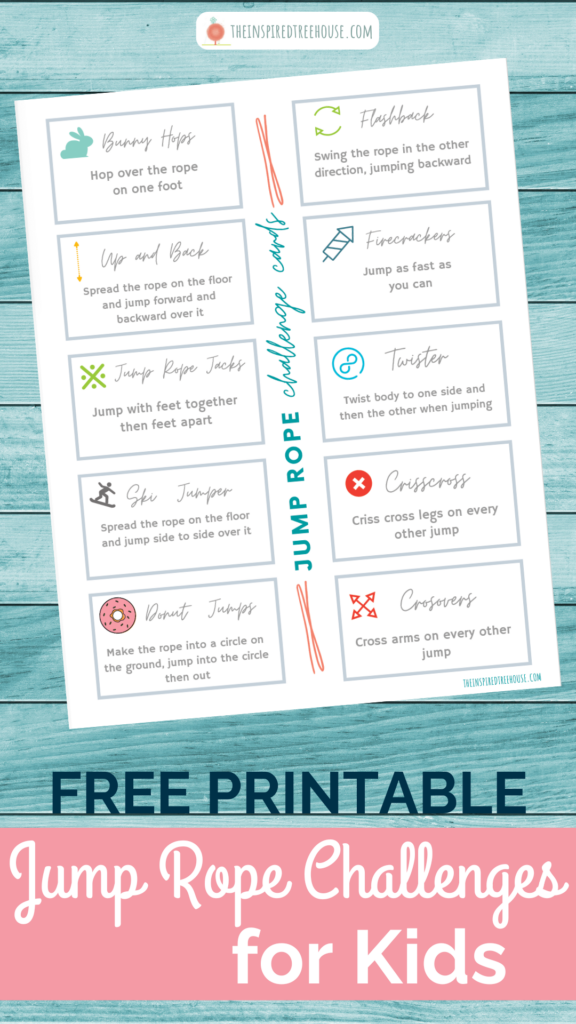 THEINSPIREDTREEHOUSE.COM
Bunny Hops
Hop over the rope
on one foot
Up and Back
Spread the rope on the floor
and jump forward and
backward over it
Jump Rope Jacks
Jump with feet together
then feet apart
Ski Jumper
Spread the rope on the floor
and jump side to side over it
Donut Jumps
Make the rope into a circle on
the ground, jump into the circle
then out
JUMP ROPE challenge cards
Flashback
Swing the rope in the other
direction, jumping backward
Firecrackers
Jump as fast as
you can
Twister
Twist body to one side and
then the other when jumping
Crisscross
Criss cross legs on every
other jump
Crosovers
Cross arms on every other
jump
THEINSPIREDTREEHOUSE.COM
FREE PRINTABLE
Jump Rope Challenges
for Kids